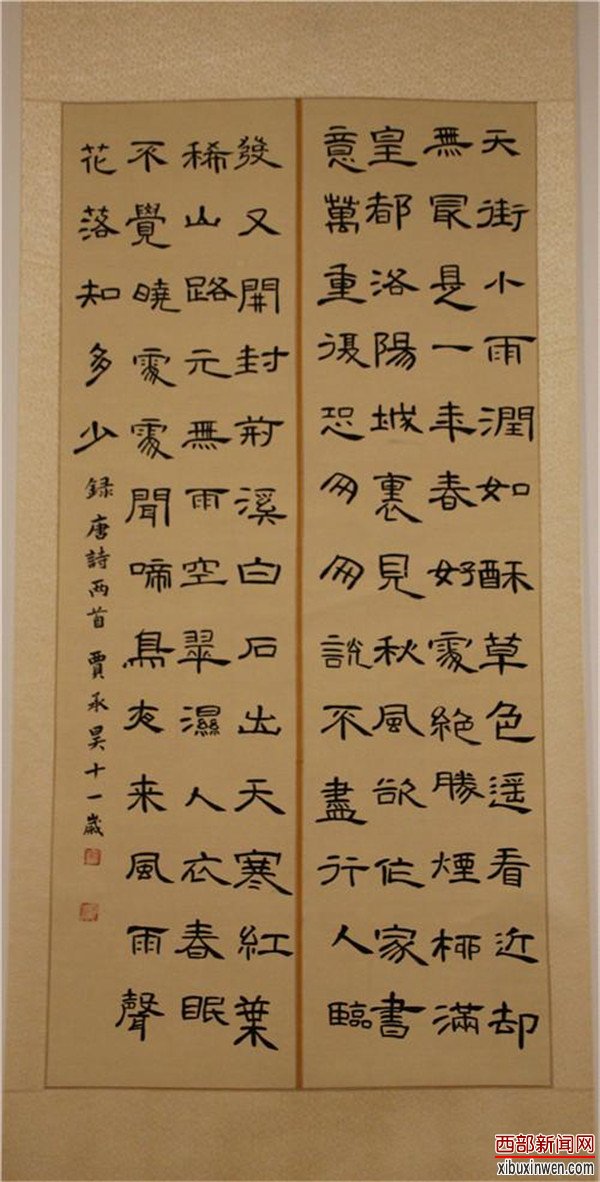 天街小雨潤如酥草色遥看近却
無最是一年春好處絶勝煙柳滿
皇都洛陽城裏見秋風欲作家書
意萬重復恐匆匆說不盡行人臨
發又開封荊溪白石出天寒紅葉
稀山路元無雨空翠濕人衣春眠
不覺曉處處聞啼鳥夜来風雨聲
花落知多少
錄唐詩两首 賈承昊十一歲
西部新闻网
xibuxinwen.com